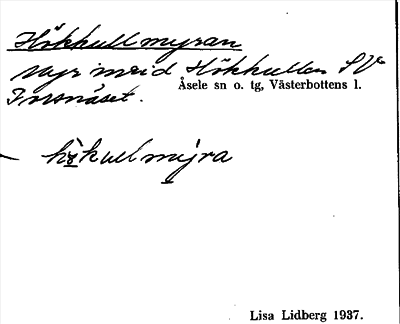 Hökkullmyran
Myr invid Hökkullen SV
Insnäset.
Åsele sn o. tg, Västerbottens l.
hökullmyra
Lisa Lidberg 1937.